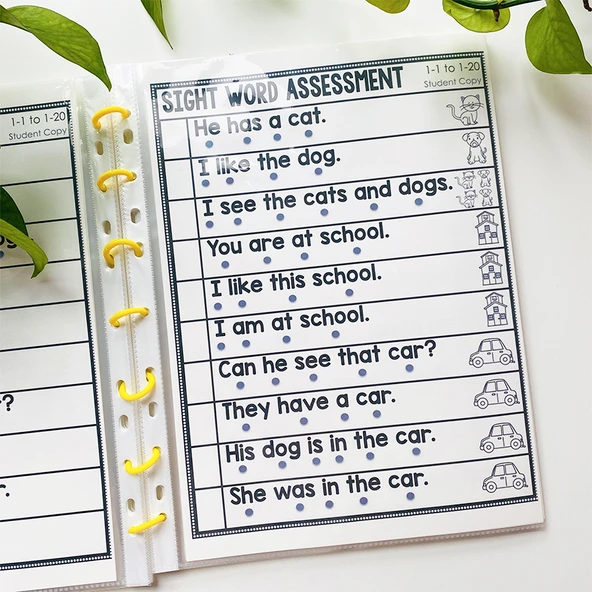 1-1 to 1-20
Student Copy
?
.
SIGHT WORD ASSESSMENT
1-1 to 1-20
Student Copy
He has a cat.
I like the dog.
I see the cats and dogs.
You are at school.
I like this school.
I am at school.
Can he see that car?
They have a car.
His dog is in the car.
She was in the car.